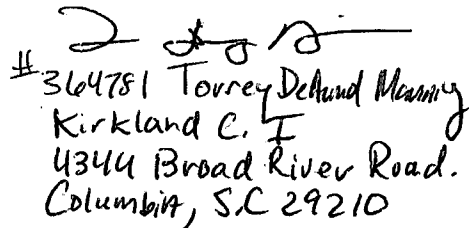 #
364781 Torrey Manning
Kirkland C. I
4344 Broad River Road.
Columbia, S.C 29210